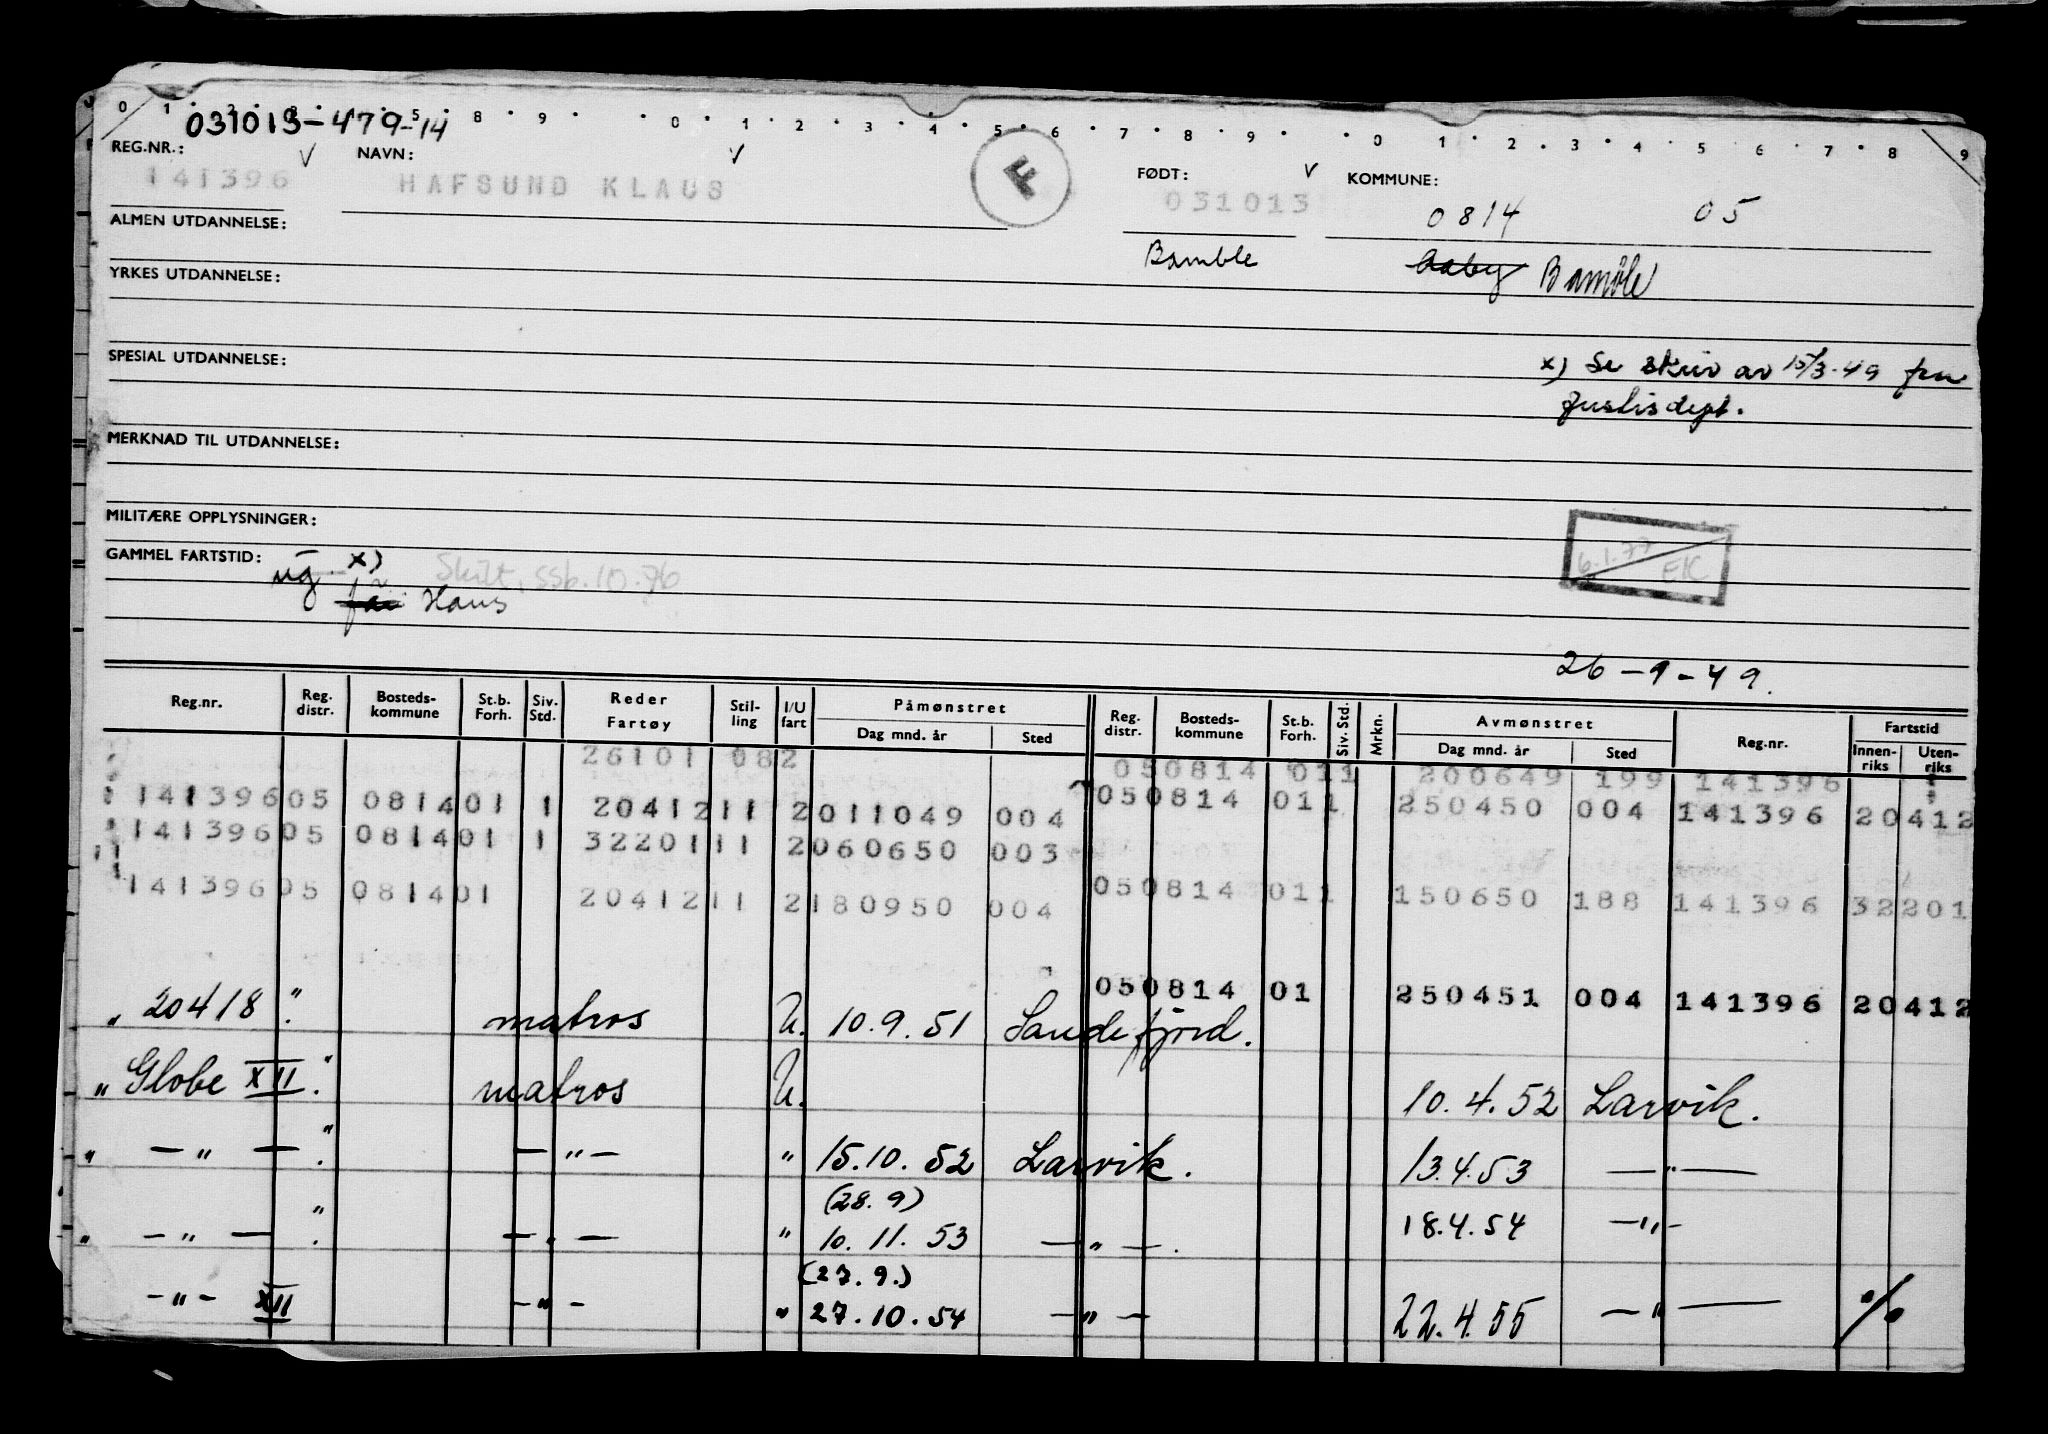 0 1 2 3 5 8 9 0 1 2 3 4 5 6 7 8 9 0 1 2 3 4 5 6 7 8 9
031013-479-14
REG.NR.: NAVN: FØDT: KOMMUNE:
141396 HAFSUND KLAUS F 031013 0814 05
ALMEN UTDANNELSE:
Bamble Bamble
YRKES UTDANNELSE:
SPESIAL UTDANNELSE:
x) Se skriv av 15/3-49 fra
Justisdept.
MERKNAD TIL UTDANNELSE:
MILITÆRE OPPLYSNINGER:
GAMMEL FARTSTID: ug x) Skilt, ssb.10.76
6.1.77 EK
Hans
26-9-49.
Reg.nr. Reg. distr. Bosteds-kommune St.b. Forh. Siv. Std. Reder Fartøy Stil-ling I/U fart Påmønstret Dag mnd. år Sted Reg. distr. Bosteds-kommune St.b. Forh. Siv. Std. Mrkn. Avmønstret Dag mnd. år Sted Reg.nr. Fartstid Innen-riks Uten-riks
26101 082 050814 011 200649 199 141396
141396 05 0814 01 1 20412 11 2 011049 004 050814 011 250450 004 141396 20412
141396 05 0814 01 1 32201 11 2 060650 003
141396 05 0814 01 20412 11 2 180950 004 050814 011 150650 188 141396 32201
050814 01 250451 004 141396 20412
" 20418 " matros U. 10.9.51 Sandefjord.
" Globe XII " matros U. 10.4.52 Larvik.
" — " — " — " — " 15.10.52 Larvik. 13.4.53 — " —
(28.9)
" — " — " — " — " 10.11.53 — " —. 18.4.54 — " —
(27.9.)
— " — XII — " — " 27.10.54 — " — 22.4.55 — " — %